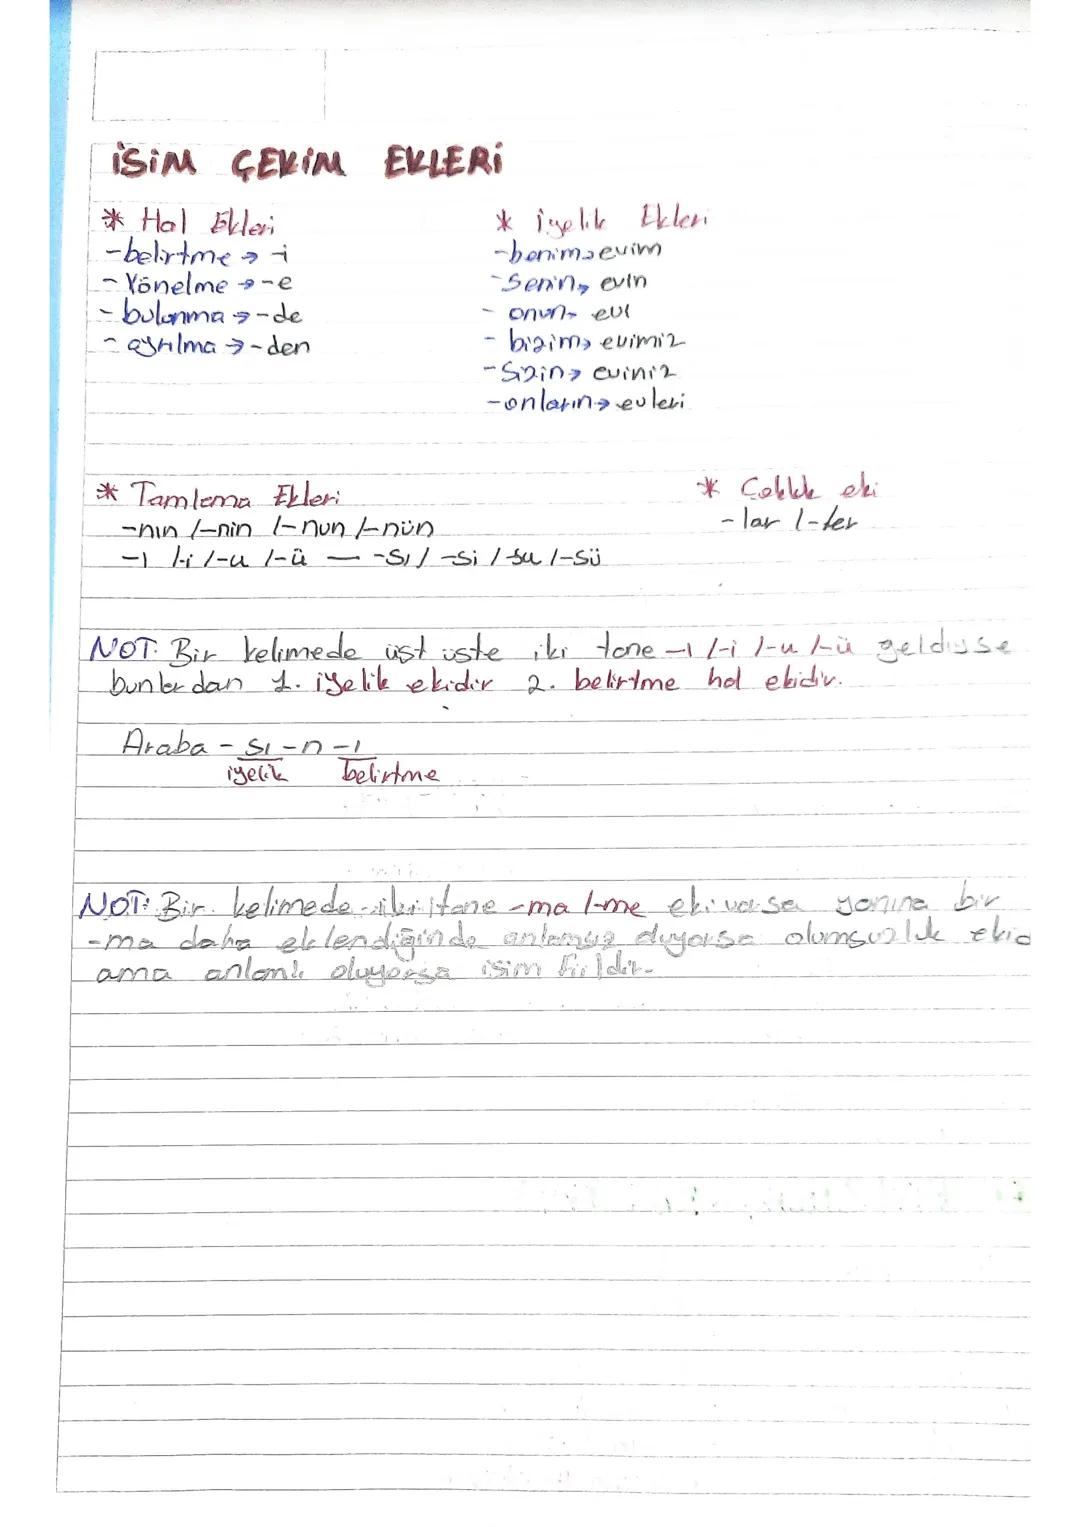 İSİM ÇEKİM EKLERİ
* Hal Ekleri
-belirtme → -i
- Yönelme → -e
- bulunma → -de
- ayrılma → -den
* iyelik Ekleri
-benim → evim
-Senin → evin
- onun → evi
- bizim → evimiz
-Sizin → eviniz
-onların → evleri
* Tamlama Ekleri
-nın /-nin /-nun /-nün
-ı /-i /-u /-ü — -sı / -si /-su /-sü
* Çokluk eki
- lar /-ler
NOT: Bir kelimede üst üste iki tane -ı /-i /-u /-ü geldiyse
bunlardan 1. iyelik ekidir 2. belirtme hal ekidir.
Araba - sı - n - ı
iyelik belirtme
NOT: Bir kelimede iki tane -ma /-me eki varsa yanına bir
-ma daha eklendiğinde anlamsız oluyorsa olumsuzluk
ama anlamlı oluyorsa isim fiildir.